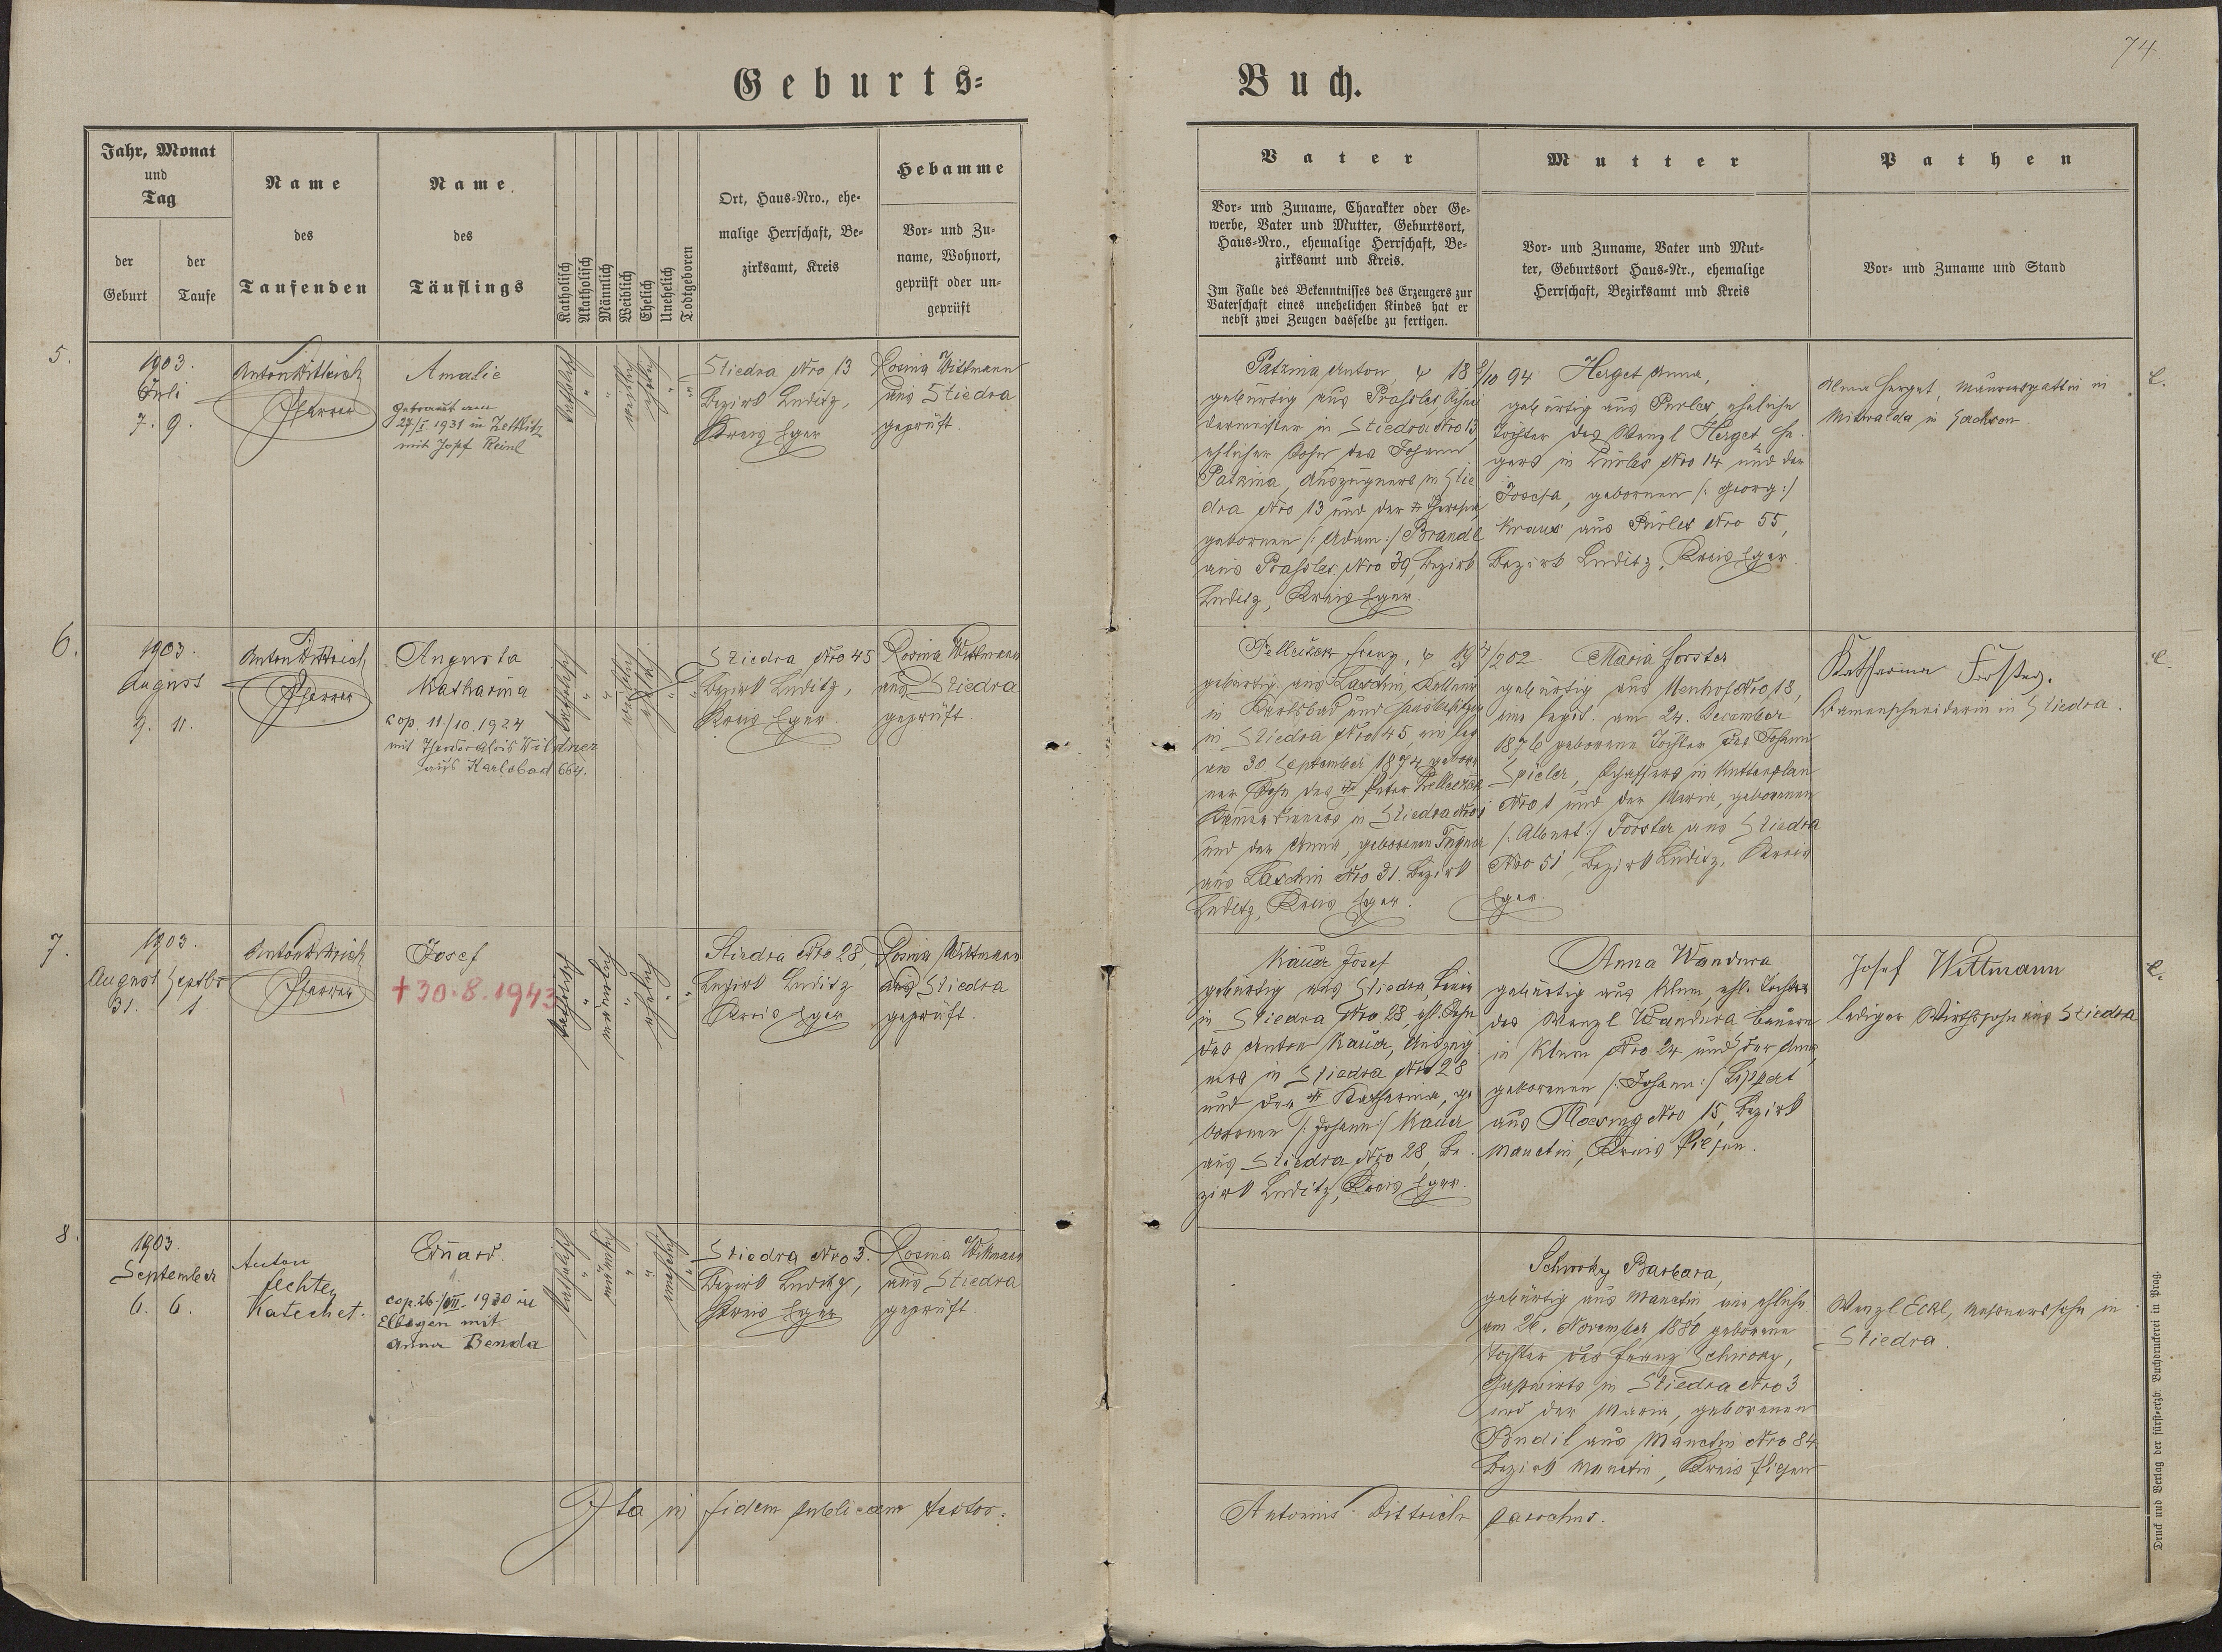 74.
Geburts=
Buch.
Jahr, Monat
und
Tag
der
Geburt
der
Taufe
Name
des
Taufenden
Name
des
Täuflings
Katholisch
Akatholisch
Männlich
Weiblich
Ehelich
Unehelich
Todtgeboren
Ort, Haus-Nro., ehe-
malige Herrschaft, Be-
zirksamt, Kreis
Hebamme
Vor- und Zu-
name, Wohnort,
geprüft oder un-
geprüft
Vater
Vor- und Zuname, Charakter oder Ge-
werbe, Vater und Mutter, Geburtsort,
Haus-Nro., ehemalige Herrschaft, Be-
zirksamt und Kreis.
Im Falle des Bekenntnisses des Erzeugers zur
Vaterschaft eines unehelichen Kindes hat er
nebst zwei Zeugen dasselbe zu fertigen.
Mutter
Vor- und Zuname, Vater und Mut-
ter, Geburtsort Haus-Nr., ehemalige
Herrschaft, Bezirksamt und Kreis
Pathen
Vor- und Zuname und Stand
5.
1903.
Juli
7. 9.
Anton Dittrich
Pfarrer
Amalie
Getraut am
27/I 1931 in Zettlitz
mit Josef Reinl
katholisch
weiblich
ehelich
Stiedra Nro 13
Bezirk Luditz,
Kreis Eger
Rosina Wittmann
aus Stiedra
geprüft.
Patzina Anton, 18 8/10 94
gebürtig aus Prassles,
in Stiedra Nro 13,
ehlicher Sohn des Johann
Patzina, Auszügners in Stie
dra Nro 13 und der Theresia,
gebornen /: Adam :/ Brandl
aus Prassles Nro 39, Bezirk
Luditz, Kreis Eger.
Herget Anna,
gebürtig aus Purles, eheliche
Tochter des Wenzl Herget,
in Purles Nro 14 und der
Josefa, gebornen /: Georg :/
Kraus aus Purles Nro 55,
Bezirk Luditz, Kreis Eger.
Herget, Maurersgattin in
Mitwalda in Sachsen.
6.
1903.
August
9. 11.
Anton Dittrich
Pfarrer
Augusta
Katharina
cop. 11/10. 1924
mit Theodor Alois Wildner
aus Karlsbad 664.
katholisch
weiblich
ehelich
Stiedra Nro 45
Bezirk Luditz,
Kreis Eger.
Rosina Wittmann
aus Stiedra
geprüft.
Franz, 19 /2 02.
gebürtig aus Laschin, Kellner
in Karlsbad und Hausbesitzer
in Stiedra Nro 45, ein leg.
am 30 September 1874 gebore
ner Sohn des Peter
in Stiedra Nro 1
und der Anna, gebornen
aus Laschin Nro 31. Bezirk
Luditz, Kreis Eger.
Maria Forster
gebürtig aus Neuhof Nro 18,
eine legit. am 24. December
1876 geborene Tochter des Johann
Spieler, Schaffers in Kuttenplan
Nro 1 und der Maria, gebornen
/: Albert :/ Forster aus Stiedra
Nro 51, Bezirk Luditz, Kreis
Eger.
Katharina Forster.
Damenschneiderin in Stiedra.
7.
1903.
August Septbr
31. 1.
Anton Dittrich
Pfarrer
Josef
+30.8.1943
katholisch
männlich
ehelich
Stiedra Nro 28,
Bezirk Luditz
Kreis Eger
Rosina Wittmann
aus Stiedra
geprüft.
Kauer Josef
gebürtig aus Stiedra, Bauer
in Stiedra Nro 28, ehl. Sohn
des Anton Kauer, Auszüg
ners in Stiedra Nro 28
und der Katharina, ge
bornen /: Johann :/ Kauer
aus Stiedra Nro 28, Be
zirk Luditz, Kreis Eger.
Anna Wandura
gebürtig aus Klum, ehl. Tochter
des Wenzl Wandura, Bauern
in Klum Nro 24 und der Anna,
gebornen /: Johann :/ Lippert
aus Nro 15, Bezirk
Manetin, Kreis Pilsen.
Josef Wittmann
lediger Wirthssohn aus Stiedra
8.
1903.
September
6. 6.
Anton
Fechter
Katechet.
Eduard.
cop. 26./VII. 1930 in
Elbogen mit
Anna Benda
katholisch
männlich
unehelich
Stiedra Nro 3.
Bezirk Luditz,
Kreis Eger
Rosina Wittmann
aus Stiedra
geprüft.
Barbara,
gebürtig aus Manetin, eine ehliche
am 26. November 1880 geborene
Tochter des Franz
Gastwirts in Stiedra Nro 3
und der Maria, gebornen
Budil aus Manetin Nro 84
Bezirk Manetin, Kreis Pilsen
Wenzl Eckl, in
Stiedra.
Ita in fidem publicam testor:
Antonius Dittrich parochus.
Druck und Verlag der fürst=erzb. Buchdruckerei in Prag.